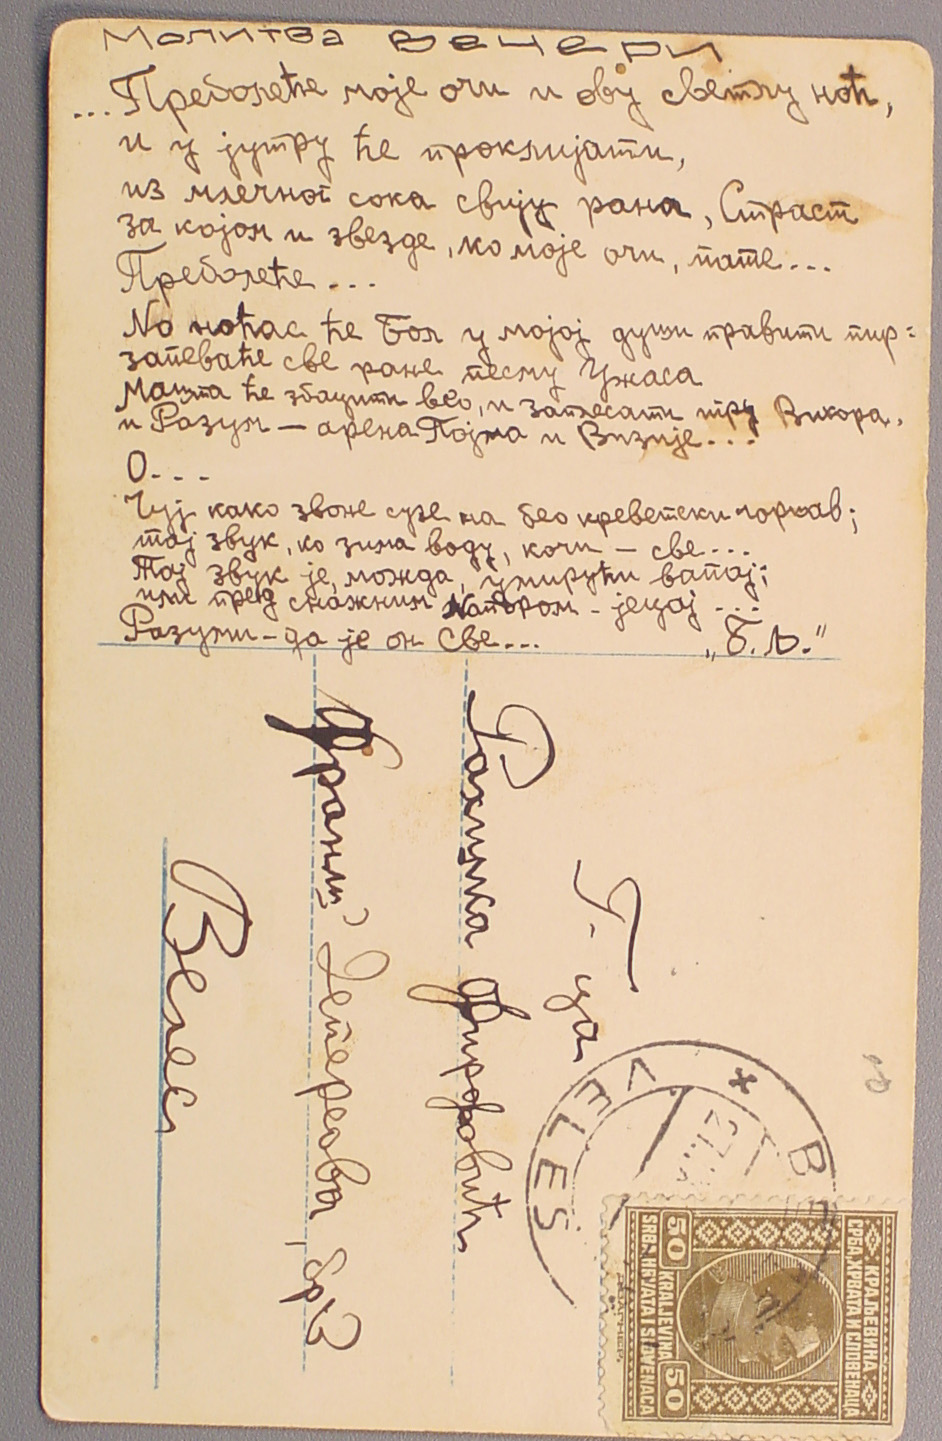 Молитва вечери
...Преболеће моје очи и ову светлу ноћ,
и у јутру ће проклијати,
из млечног сока свију рана, Страст
за којом и звезде, ко моје очи, пате...
Преболеће...
No ноћас ће Бол у мојој души правити пир-
запеваће све ране песму Ужаса
Машта ће збацити вео, и заплесати Вихора,
и Разум — арена Појма и Визије...
О...
Чуј како звоне сузе на бео креветски чаршав;
тај звук, ко зима воду, кочи — све...
Тај звук је, можда, умирући вапај;
или пред снажним Напором - јецај...
Разуми - да је он Све... „Б. Љ."
Г-ђа
Рахилка Фирфовић
Франш Депереова, бр. 3
Велес
VELES
КРАЉЕВИНА
СРБА ХРВАТА И СЛОВЕНАЦА
50 KRALJEVINA 50
SRBA HRVATA I SLOVENACA